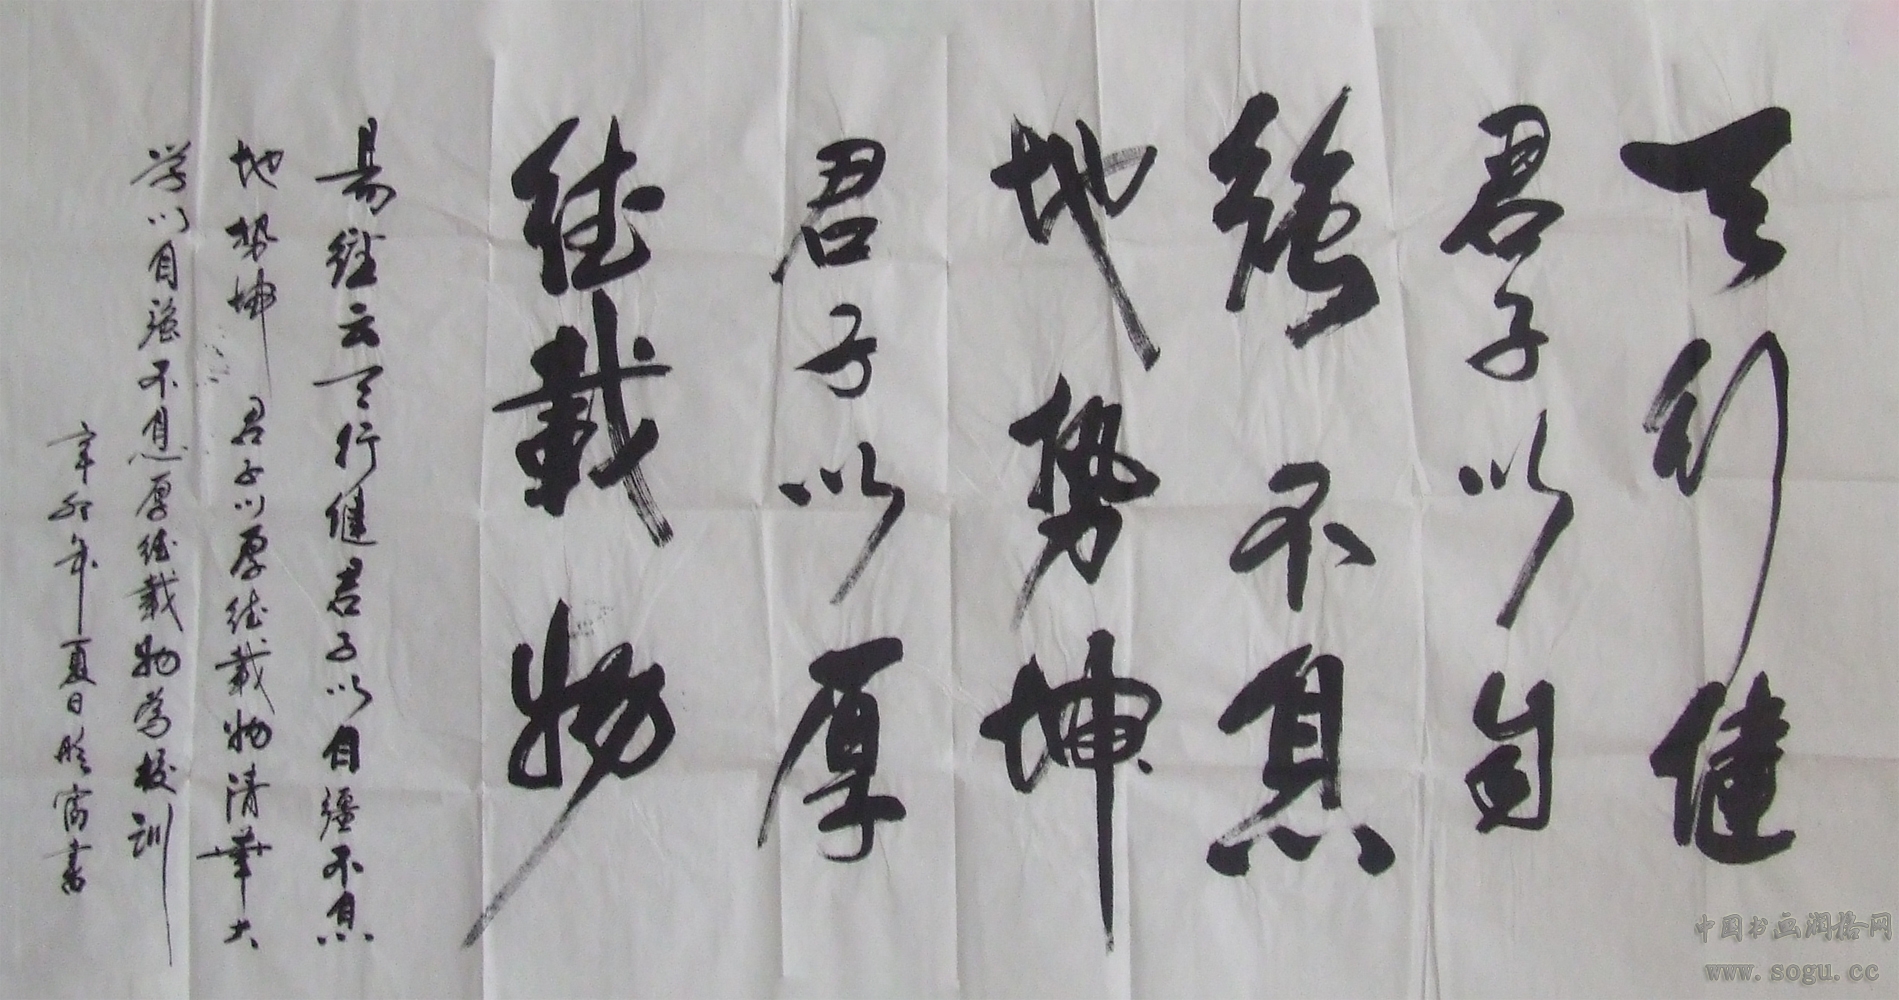 天行健
君子以自
强不息
地势坤
君子以厚
德载物
易经云天行健君子以自强不息
地势坤君子以厚德载物清华大
学以自强不息厚德载物为校训
辛卯年夏日 书
中国书画润格网
www.sogu.cc